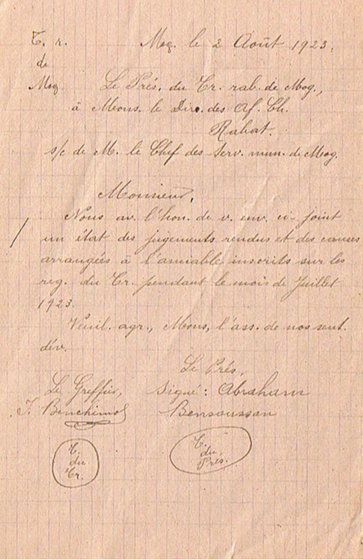 T. r. Mog. le 2 Août 1923.
de
Mog. Le Prés. du Tr. rab. de Mog.,
à Mons. le Dir. des Af. Ch.
Rabat.
s/c de M. le Chef des Serv. mun. de Mog.
Monsieur,
Nous av. l'hon. de v. env. ci-joint
un état des jugements rendus et des causes
arrangées à l'amiable inscrits sur les
reg. du Tr. pendant le mois de Juillet
1923.
Veuil. agr., Mons, l'ass. de nos sent.
dév.
Le Prés,
Le Greffier, Signé: Abraham
J. Benchimol Bensoussan
T.
du
Tr.
T.
du
Prés.